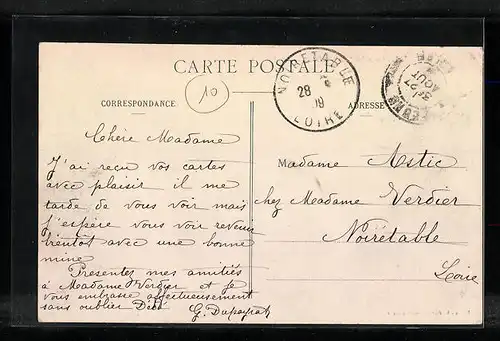 CARTE POSTALE
CORRESPONDANCE
ADRESSE
10
NOIRETABLE
28
09
LOIRE
27
AOUT
Chère Madame
J'ai reçu vos cartes
avec plaisir il me
tarde de vous voir mais
j'espère vous voir revenir
bientôt avec une bonne
mine
Presentez mes amitiés
à Madame Verdier et je
vous embrasse affectueusement
sans oublier Dédé
G. Dupeyrat
Madame Astic
chez Madame Verdier
Noirétable
Loire